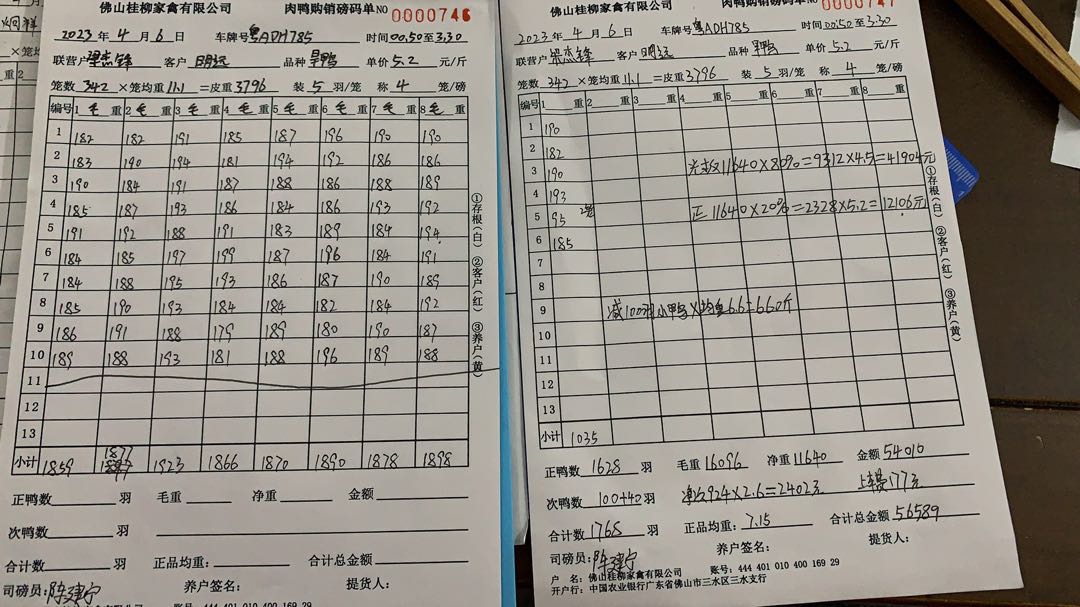 佛山桂柳家禽有限公司 肉鸭购销磅码单 NO 0000746
2023 年 4 月 6 日 车牌号 粤ADH785 时间 00:50 至 3:30
联营户 梁杰锋 客户 明远 品种 旱鸭 单价 5.2 元/斤
笼数 342 ×笼均重 11.1 =皮重 3796 装 5 羽/笼 称 4 笼/磅
编号 1 毛 重 2 毛 重 3 毛 重 4 毛 重 5 毛 重 6 毛 重 7 毛 重 8 毛 重
1 182 182 191 185 187 196 190 190
2 183 190 194 181 194 192 186 186
3 190 184 191 187 188 186 188 189
4 185 187 193 186 184 186 193 192
5 191 192 188 191 183 189 184 194
6 184 185 197 199 187 196 184 191
7 184 188 195 193 186 187 190 189
8 185 190 193 184 184 182 184 192
9 186 191 188 179 189 180 190 187
10 189 188 193 181 188 196 189 188
11
12
13
小计 1859 1877 1923 1866 1870 1890 1878 1898
正鸭数 羽 毛重 净重 金额
次鸭数 羽
合计数 羽 正品均重: 合计总金额
司磅员: 陈建宁 养户签名: 提货人:
账号: 444 401 010 400 169 29
①存根(白) ②客户(红) ③养户(黄)
佛山桂柳家禽有限公司 肉鸭购销磅码单 NO 0000747
2023 年 4 月 6 日 车牌号 粤ADH785 时间 00:50 至 3:30
联营户 梁杰锋 客户 明远 品种 旱鸭 单价 5.2 元/斤
笼数 342 ×笼均重 11.1 =皮重 3796 装 5 羽/笼 称 4 笼/磅
编号 1 重 2 重 3 重 4 重 5 重 6 重 7 重 8 重
1 190
2 182
3 190 11640×80%=9312×4.5=41904元
4 193
5 95 2笼 正 11640×20%=2328×5.2=12106元
6 185
7
8
9 减100羽小鸭×均重6.6=660斤
10
11
12
13
小计 1035
正鸭数 1628 羽 毛重 16096 净重 11640 金额 54010
次鸭数 100+40 羽 净924×2.6=2402元 上车费177元
合计数 1768 羽 正品均重: 7.15 合计总金额 56589
司磅员: 陈建宁 养户签名: 提货人:
户 名: 佛山桂柳家禽有限公司 账号: 444 401 010 400 169 29
开户行: 中国农业银行广东省佛山市三水区三水支行
①存根(白) ②客户(红) ③养户(黄)